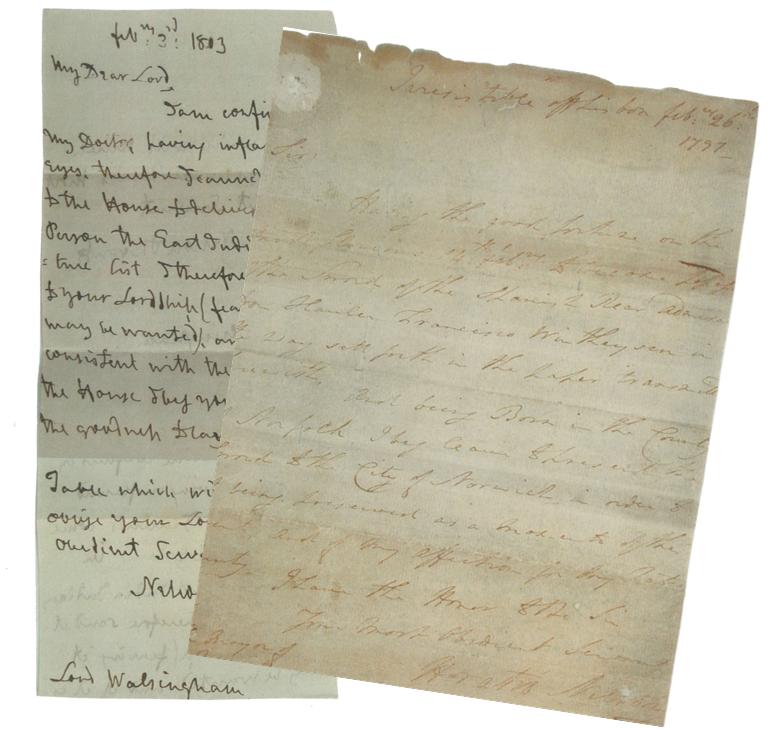 feb^ry 3^rd: 1803
My Dear Lord,
I am confi
My Doctor, having infla
Eyes, therefore I cannot
to the House to deliver
Person the East Indi
=ture list I therefore
to your Lordship (fea
may be wanted), an
consistent with the
the House I beg you
the goodness to lay
Table which wi
oblige your Lo
Obedient Servant
Nelso
Lord Walsingham
Irresistible off Lisbon feb:^ry 26^th
1797
Sir
Having the good fortune on the
the Sword of the Spanish Rear Admiral
Don Francisco Winthuysen in
the way sett forth in the paper transmitted
herewith
And being Born in the County
Norfolk, I beg leave to present the
Sword to the City of Norwich in order to
being preserved as a memento of the
event, and of my affection for my
County. I have the Honor to be Sir
Your most Obedient Servant
Mayor of
Horatio Nelson